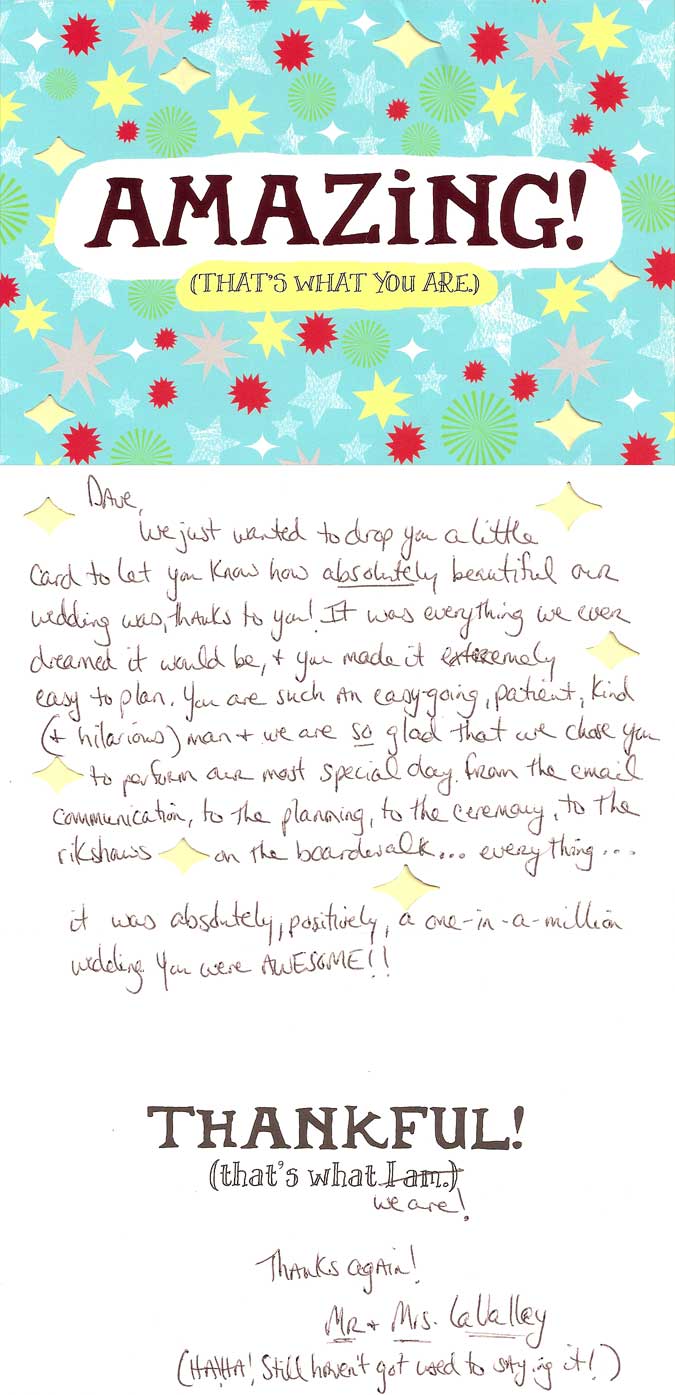 AMAZiNG!
(THAT'S WHAT YOU ARE.)
Dave,
We just wanted to drop you a little
card to let you know how absolutely beautiful our
wedding was, thanks to you! It was everything we ever
dreamed it would be, + you made it extremely
easy to plan. You are such an easy-going, patient, kind
(+ hilarious) man + we are so glad that we chose you
to perform our most special day. From the email
communication, to the planning, to the ceremony, to the
rikshaws on the boardwalk... everything...
it was absolutely, positively, a one-in-a-million
wedding. You were AWESOME!!
THANKFUL!
(that's what I am.)
we are!
Thanks again!
Mr + Mrs. LaValley
(HAHA! Still haven't got used to saying it!)